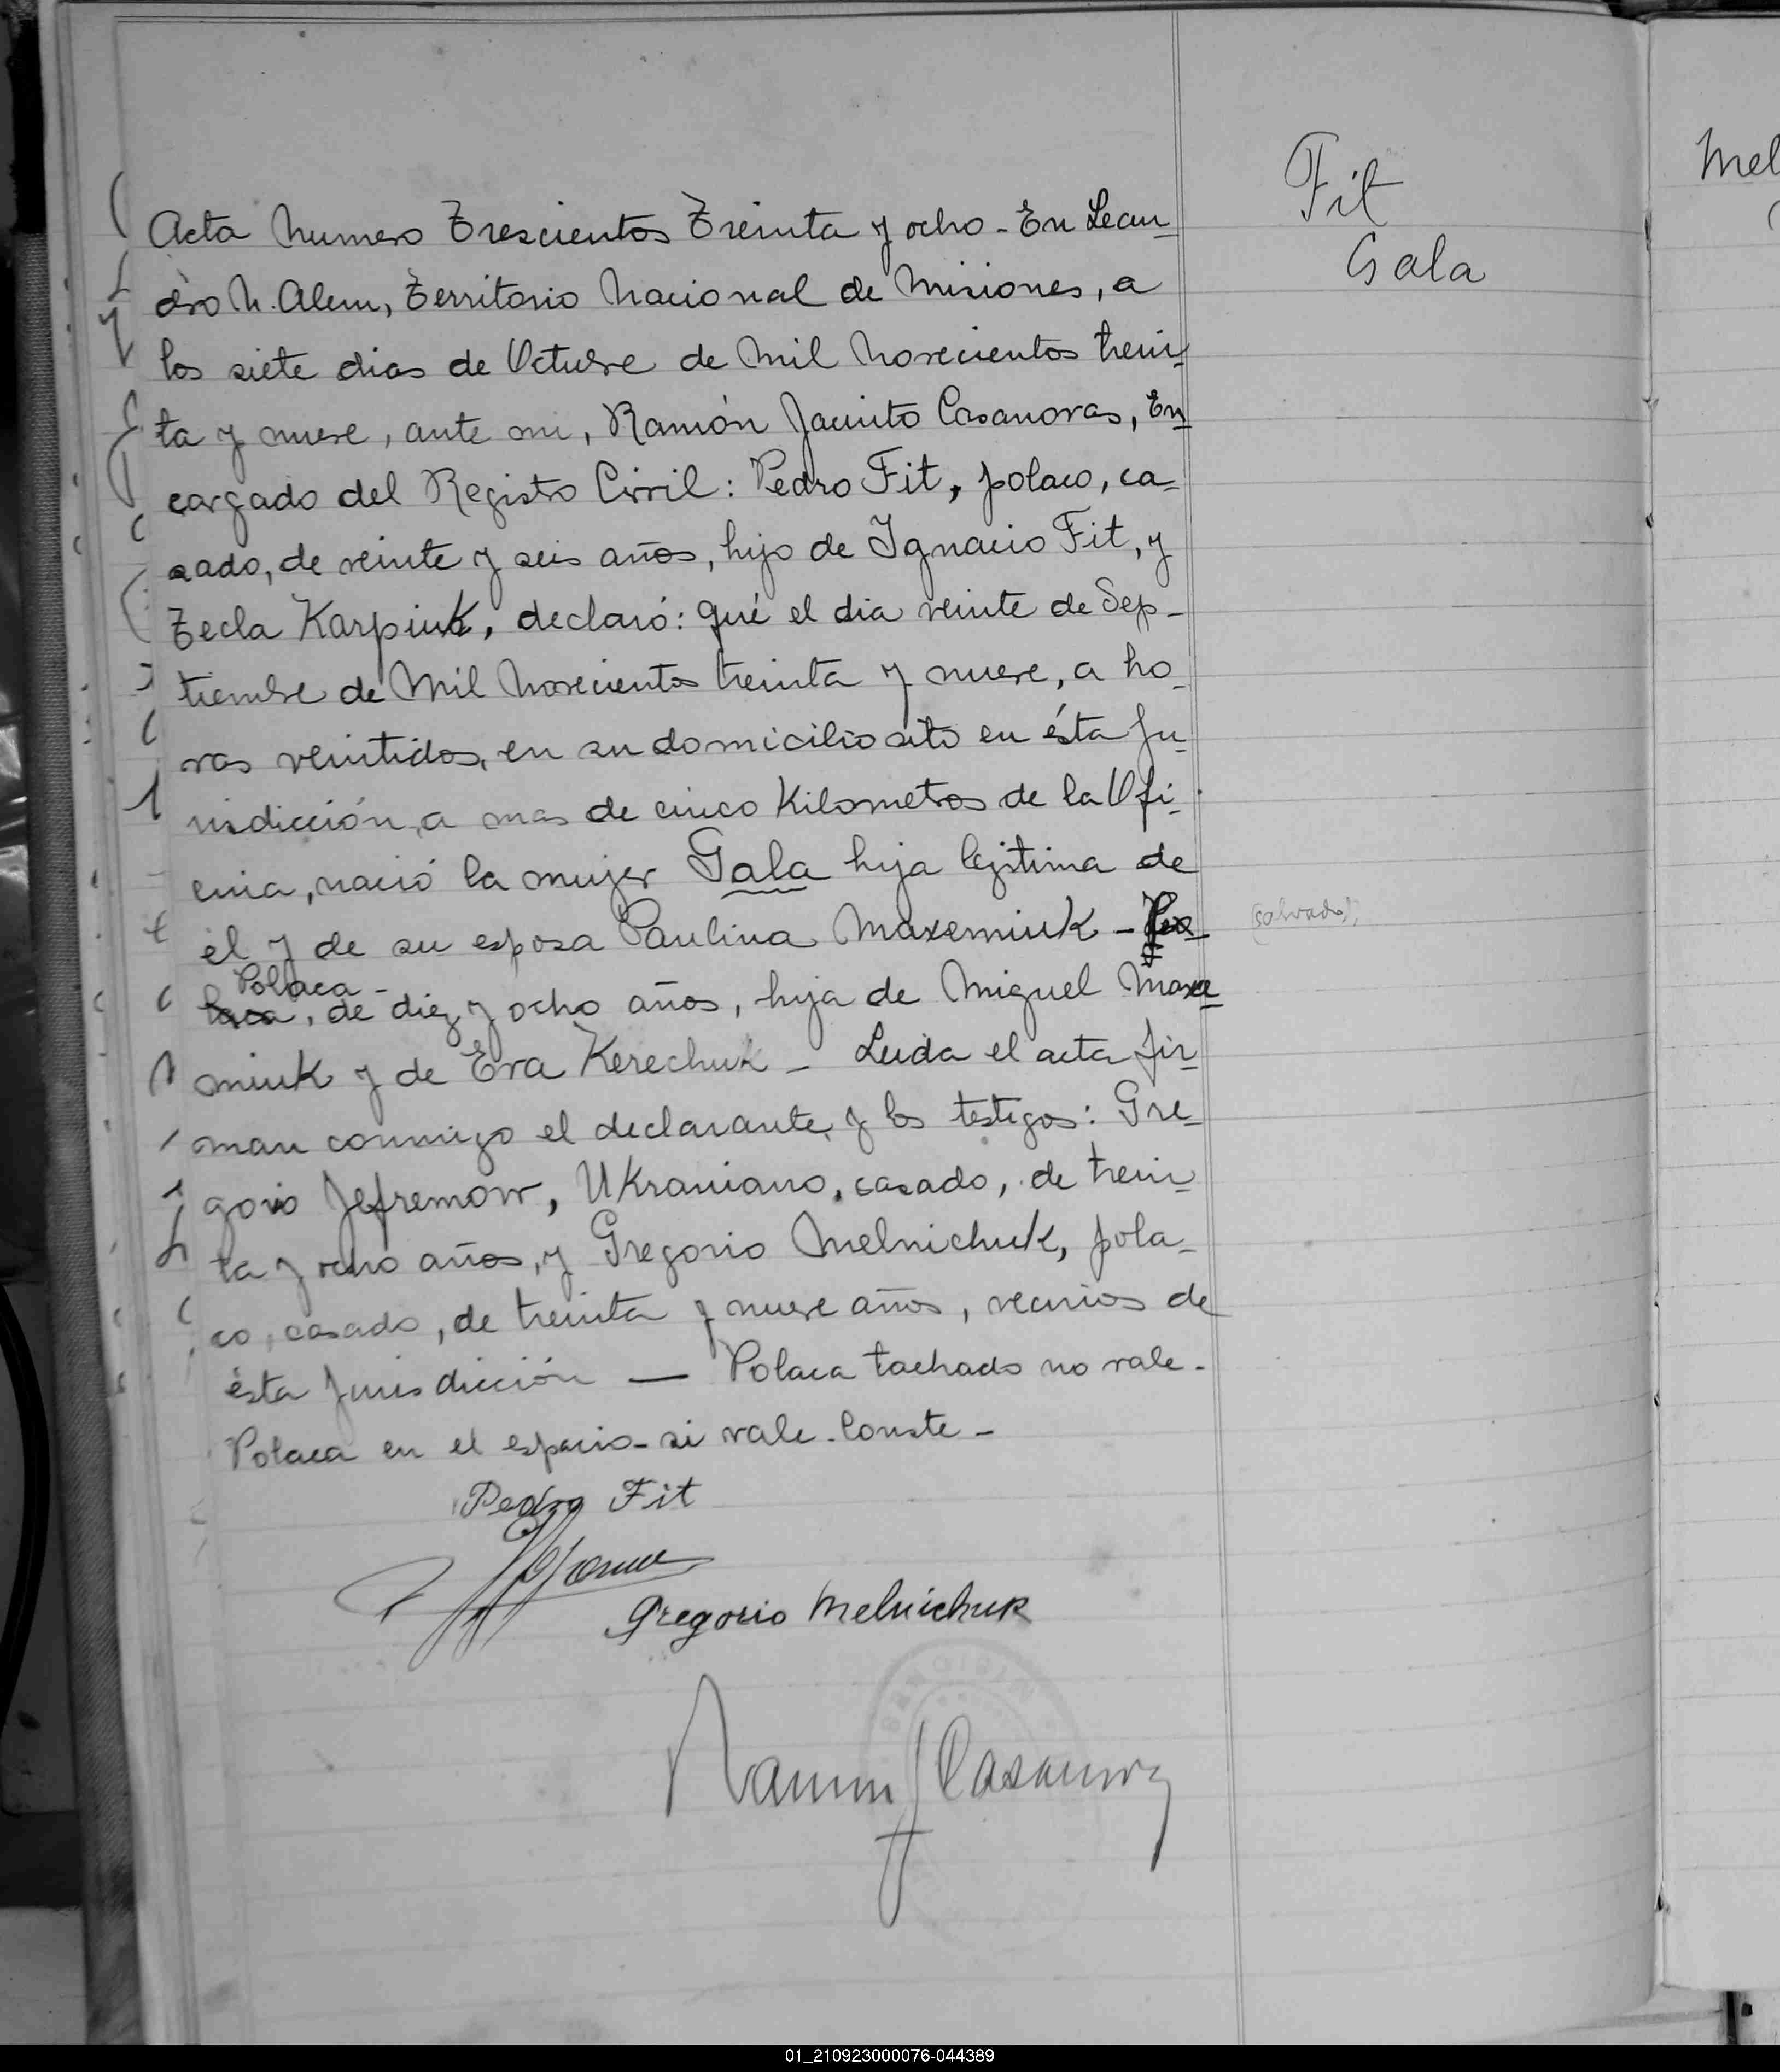 Fit
Gala
Mel
Acta Numero Trescientos Treinta y ocho - En Lean-
dro N. Alem, Territorio Nacional de Misiones, a
los siete dias de Octubre de Mil Novecientos trein-
ta y nueve, ante mi, Ramón Jacinto Casanovas, En-
cargado del Registro Civil: Pedro Fit, polaco, ca-
sado, de veinte y seis años, hijo de Ignacio Fit, y
Tecla Karpiuk, declaró: qué el dia veinte de Sep-
tiembre de Mil Novecientos treinta y nueve, a ho-
ras veintidos, en su domicilio sito en ésta Ju-
risdicción, a mas de cinco Kilometros de la Ofi-
cina, nació la mujer Gala hija legitima de
él y de su esposa Paulina Maxemiuk -
(salvado)
Polaca -
laca, de diez y ocho años, hija de Miguel Maxe-
miuk y de Eva Kerechuk - Leida el acta fir-
man conmigo el declarante y los testigos: Gre-
gorio Jefremow, Ukraniano, casado, de trein-
ta y ocho años, y Gregorio Melnichuk, pola-
co, casado, de treinta y nueve años, vecinos de
ésta Jurisdicción — Polaca tachado no vale -
Polaca en el espacio - si vale. Conste -
Pedro Fit
Gregorio Melnichuk
Ramon J Casanovas
01_210923000076-044389